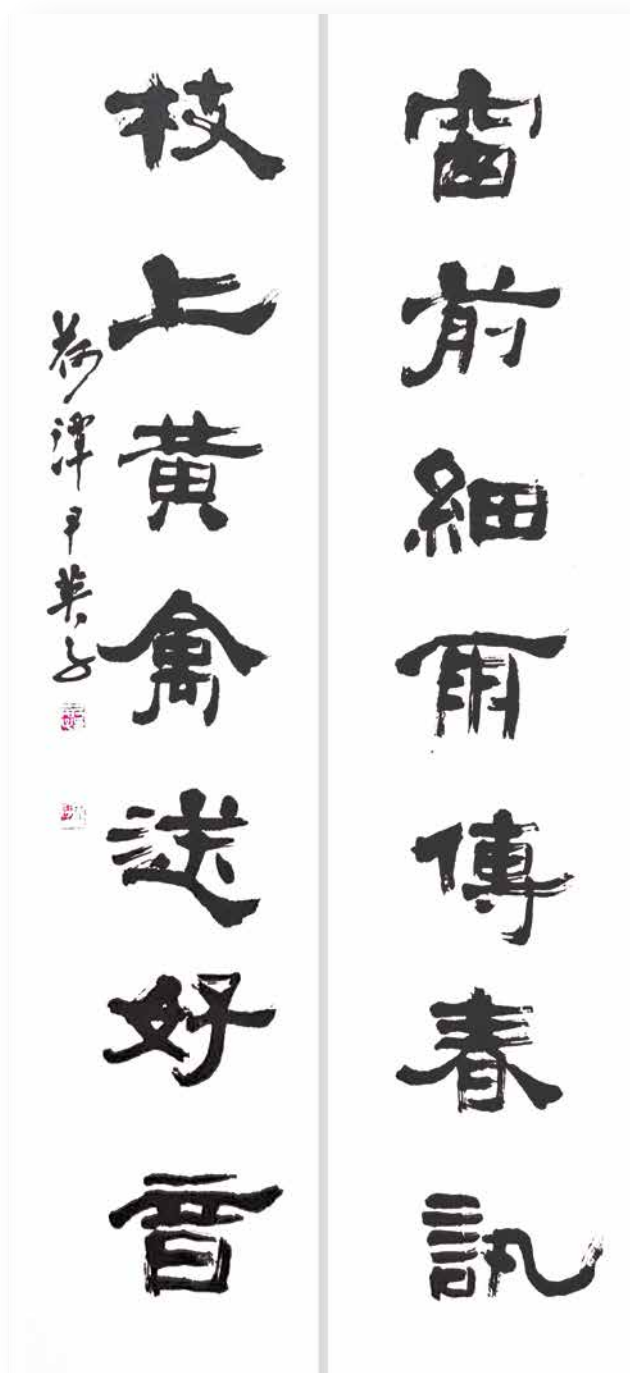 窗前細雨傳春訊
枝上黃禽送好音
荷潭尹英子